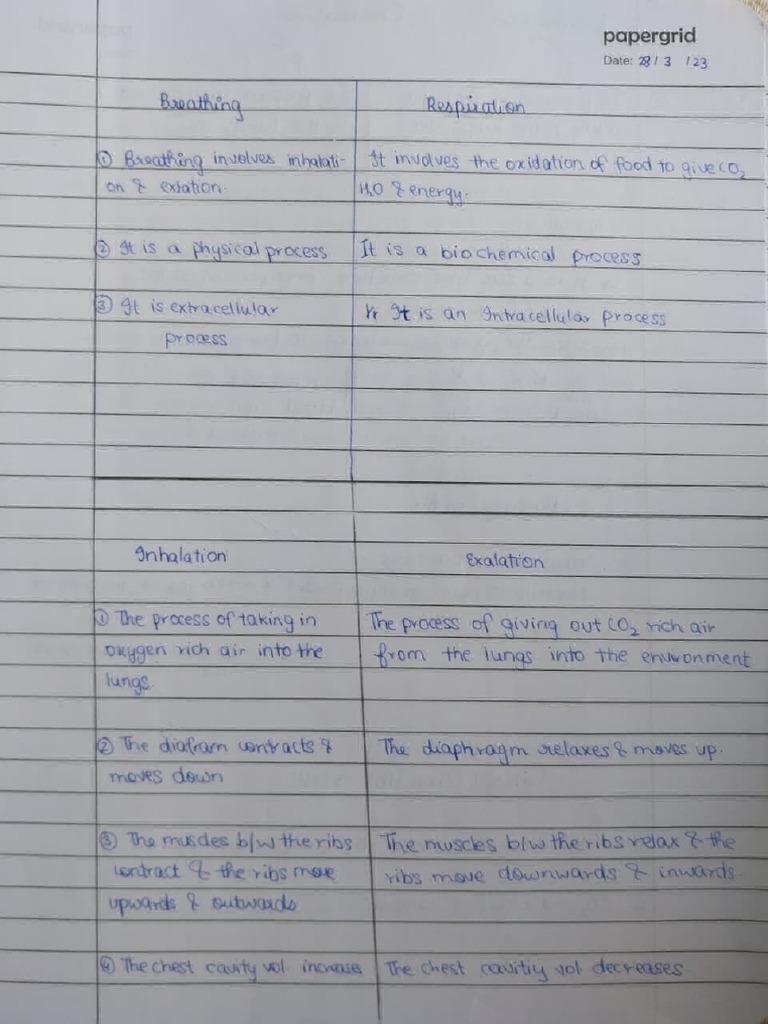 papergrid
Date: 28 / 3 / 23
Breathing
Respiration
① Breathing involves inhalati-
on & exlation.
It involves the oxidation of food to give CO2
H2O & energy.
② It is a physical process
It is a biochemical process
③ It is extracellular
process
It is an Intracellular process
Inhalation
Exalation
① The process of taking in
oxygen rich air into the
lungs.
The process of giving out CO2 rich air
from the lungs into the environment
② The diafram contracts &
moves down
The diaphragm relaxes & moves up.
③ The muscles b/w the ribs
contract & the ribs move
upwards & outwards
The muscles b/w the ribs relax & the
ribs move downwards & inwards.
④ The chest cavity vol. increases
The chest cavitiy vol decreases.